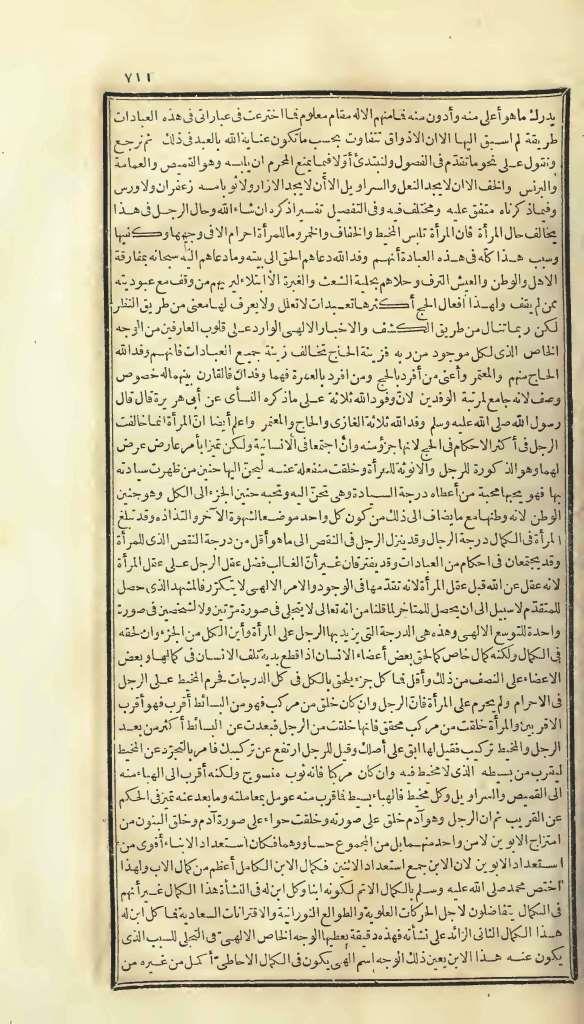 ٧١١
يدرك ما هو أعلى منه وأدون منه فمامنهم الا له مقام معلوم فما اخترعت فى عباراتى فى هذه العبادات
طريقة لم اسبق اليها الا ان الاذواق تتفاوت بحسب ما تكون عناية الله بالعبد فى ذلك ثم نرجع
ونقول على نحو ما تقدّم فى الفصول ولنبتدئ أوّلا فيما يمنع المحرم ان يلبسه وهو القميص والعمامة
والبرنس والخف الا ان لا يجد النعل والسراويل الا أن لا يجد الازار ولا ثوبا مسه زعفران ولا ورس
وفيما ذكرناه متفق عليه ومختلف فيه وفى التفصيل تفسير اذكره ان شاء الله وحال الرجل فى هذا
يخالف حال المرأة فان المرأة تلبس المخيط والخفاف والخمر وما للمرأة احرام الا فى وجهها وكفيها
وسبب هذا كله فى هذه العبادة أنهم وفد الله دعاهم الحق الى بيته وما دعاهم اليه سبحانه بمفارقة
الاهل والوطن والعيش الترف وحلاهم بحلية الشعث والغبرة الا ابتلاء ليريهم من وقف مع عبوديته
ممن لم يقف ولهذا أفعال الحج أكثرها تعبدات لا تعلل ولا يعرف لها معنى من طريق النظر
لكن ربما تنال من طريق الكشف والاخبار الالهى الوارد على قلوب العارفين من الوجه
الخاص الذى لكل موجود من ربه فزينة الحاج تخالف زينة جميع العبادات فانهم وفد الله
الحاج منهم والمعتمر وأعنى من أفرد بالحج ومن افرد بالعمرة فهما وفدان فالقارن بينهما له خصوص
وصف لانه جامع لمرتبة الوفدين لان وفود الله ثلاثة على ما ذكره النسأى عن أبى هريرة قال قال
رسول الله صلى الله عليه وسلم وفد الله ثلاثة الغازى والحاج والمعتمر واعلم أيضا ان المرأة انما خالفت
الرجل فى أكثر الاحكام فى الحج لانها جزؤ منه وان اجتمعا فى الانسانية ولكن تميزا بأمر عارض عرض
لهما وهو الذكورة للرجل والانوثة للمرأة وخلقت منفعلة عنه ليحنّ اليها حنين من ظهرت سيادته
بها فهو يحبها محبة من أعطاه درجة السيادة وهى تحنّ اليه وتحبه حنين الجزء الى الكل وهو حنين
الوطن لانه وطنها مع ما يضاف الى ذلك من كون كل واحد موضعا لشهوة الآخر والتذاذه وقد تبلغ
المرأة فى الكمال درجة الرجال وقد ينزل الرجل فى النقص الى ما هو أقل من درجة النقص الذى للمرأة
وقد يجتمعان فى احكام من العبادات وقد يفترقان غير أنّ الغالب فضل عقل الرجل على عقل المرأة
لانه عقل عن الله قبل عقل المرأة لانه تقدّمها فى الوجود والامر الالهى لا يتكرّر فالمشهد الذى حصل
للمتقدّم لا سبيل الى ان يحصل للمتأخر لما قلنا من انه تعالى لا يتجلى فى صورة مرّتين ولا لشخصين فى صورة
واحدة للتوسع الالهى وهذه هى الدرجة التى يزيد بها الرجل على المرأة وأين الكل من الجزء وان لحقه
فى الكمال ولكنه كمال خاص كما لحق بعض أعضاء الانسان اذا قطع بدية تلف الانسان فى كمالها وبعض
الاعضاء على النصف من ذلك وأقل فما كل جزء يلحق بالكل فى كل الدرجات فحرم المخيط على الرجل
فى الاحرام ولم يحرم على المرأة فانّ الرجل وان كان خلق من مركب فهو من البسائط أقرب فهو أقرب
الاقربين والمرأة خلقت من مركب محقق فانها خلقت من الرجل فبعدت عن البسائط أكثر من بعد
الرجل والمخيط تركيب فقيل لها ابقى على أصلك وقيل للرجل ارتفع عن تركيبك فأمر بالتجرّد عن المخيط
ليقرب من بسيطه الذى لا مخيط فيه وان كان مركبا فانه ثوب منسوج ولكنه أقرب الى الهباء منه
الى القميص والسراويل وكل مخيط فالهباء بسيط فما قرب منه عومل بمعاملته وما بعد عنه تميز فى الحكم
عن القريب ثم ان الرجل وهو آدم خلق على صورته وخلقت حوّاء على صورة آدم وخلق البنون من
امتزاج الابوين لا من واحد منهما بل من المجموع حسا ووهما فكان استعداد الابناء أقوى من
استعداد الابوين لان الابن جمع استعداد الاثنين فكمال الابن الكامل أعظم من كمال الاب ولهذا
اختص محمد صلى الله عليه وسلم بالكمال الاتم لكونه ابنا وكل ابن له فى النشأة هذا الكمال غير أنهم
فى الكمال يتفاضلون لاجل الحركات العلوية والطوالع النورانية والاقترانات السعادية فما كل ابن له
هذا الكمال الثانى الزائد على نشأته فهذه دقيقة يعطيها الوجه الخاص الالهىّ فى التجلى للسبب الذى
يكون عنه هذا الابن يعين ذلك الوجه اسم الهى يكون فى الكمال الاحاطىّ أكمل من غيره من